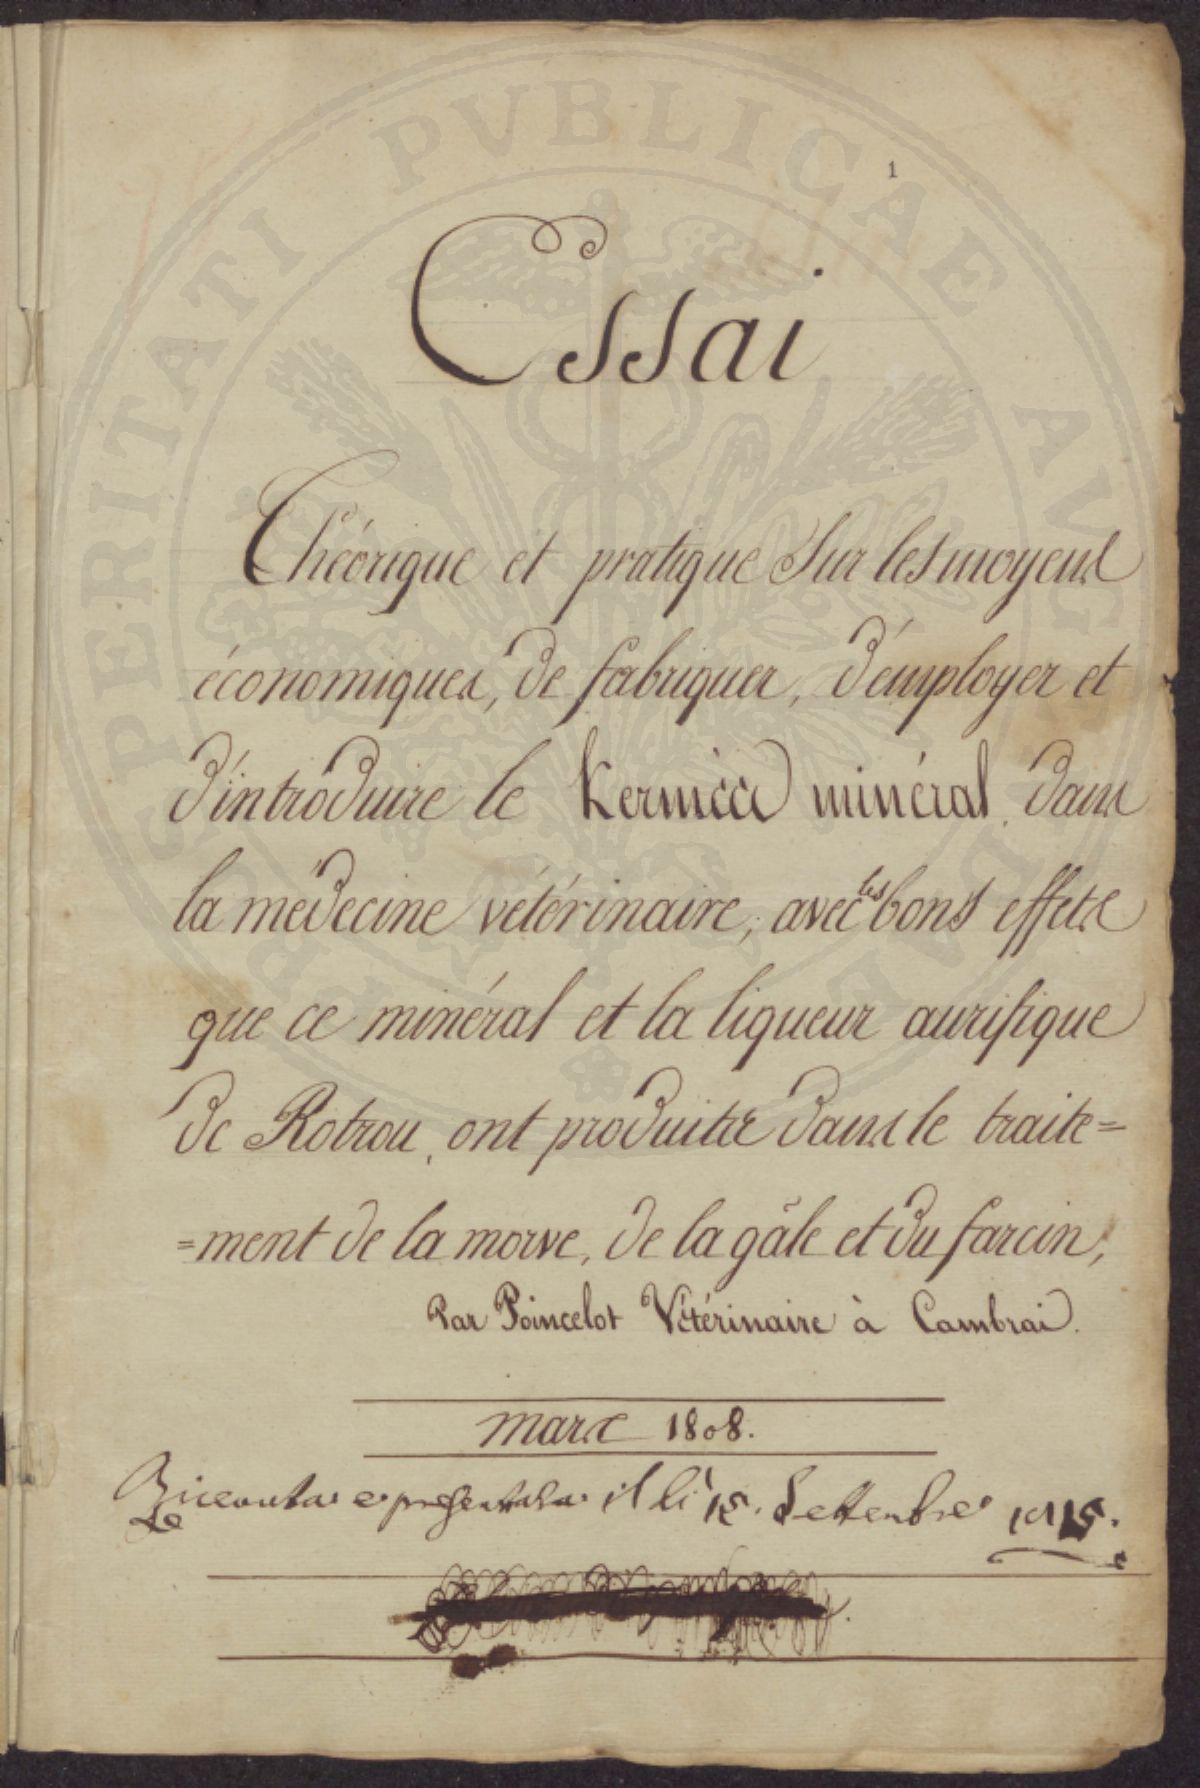 1
Essai
Théorique et pratique Sur les moyens
économiques, de fabriquer, d'émployer et
d'introduire le Kermèce minéral, dans
la médecine vétérinaire, avec les bons effets
que ce minéral et la liqueur aurifique
de Rotrou, ont produits dans le traite=
=ment de la morve, de la gâle et du farcin,
Par Poincelot Vétérinaire à Cambrai.
mars 1808.
e presentata il li 15. Settembre 1815.
PROSPERITATI PVBLICAE AVGENDAE